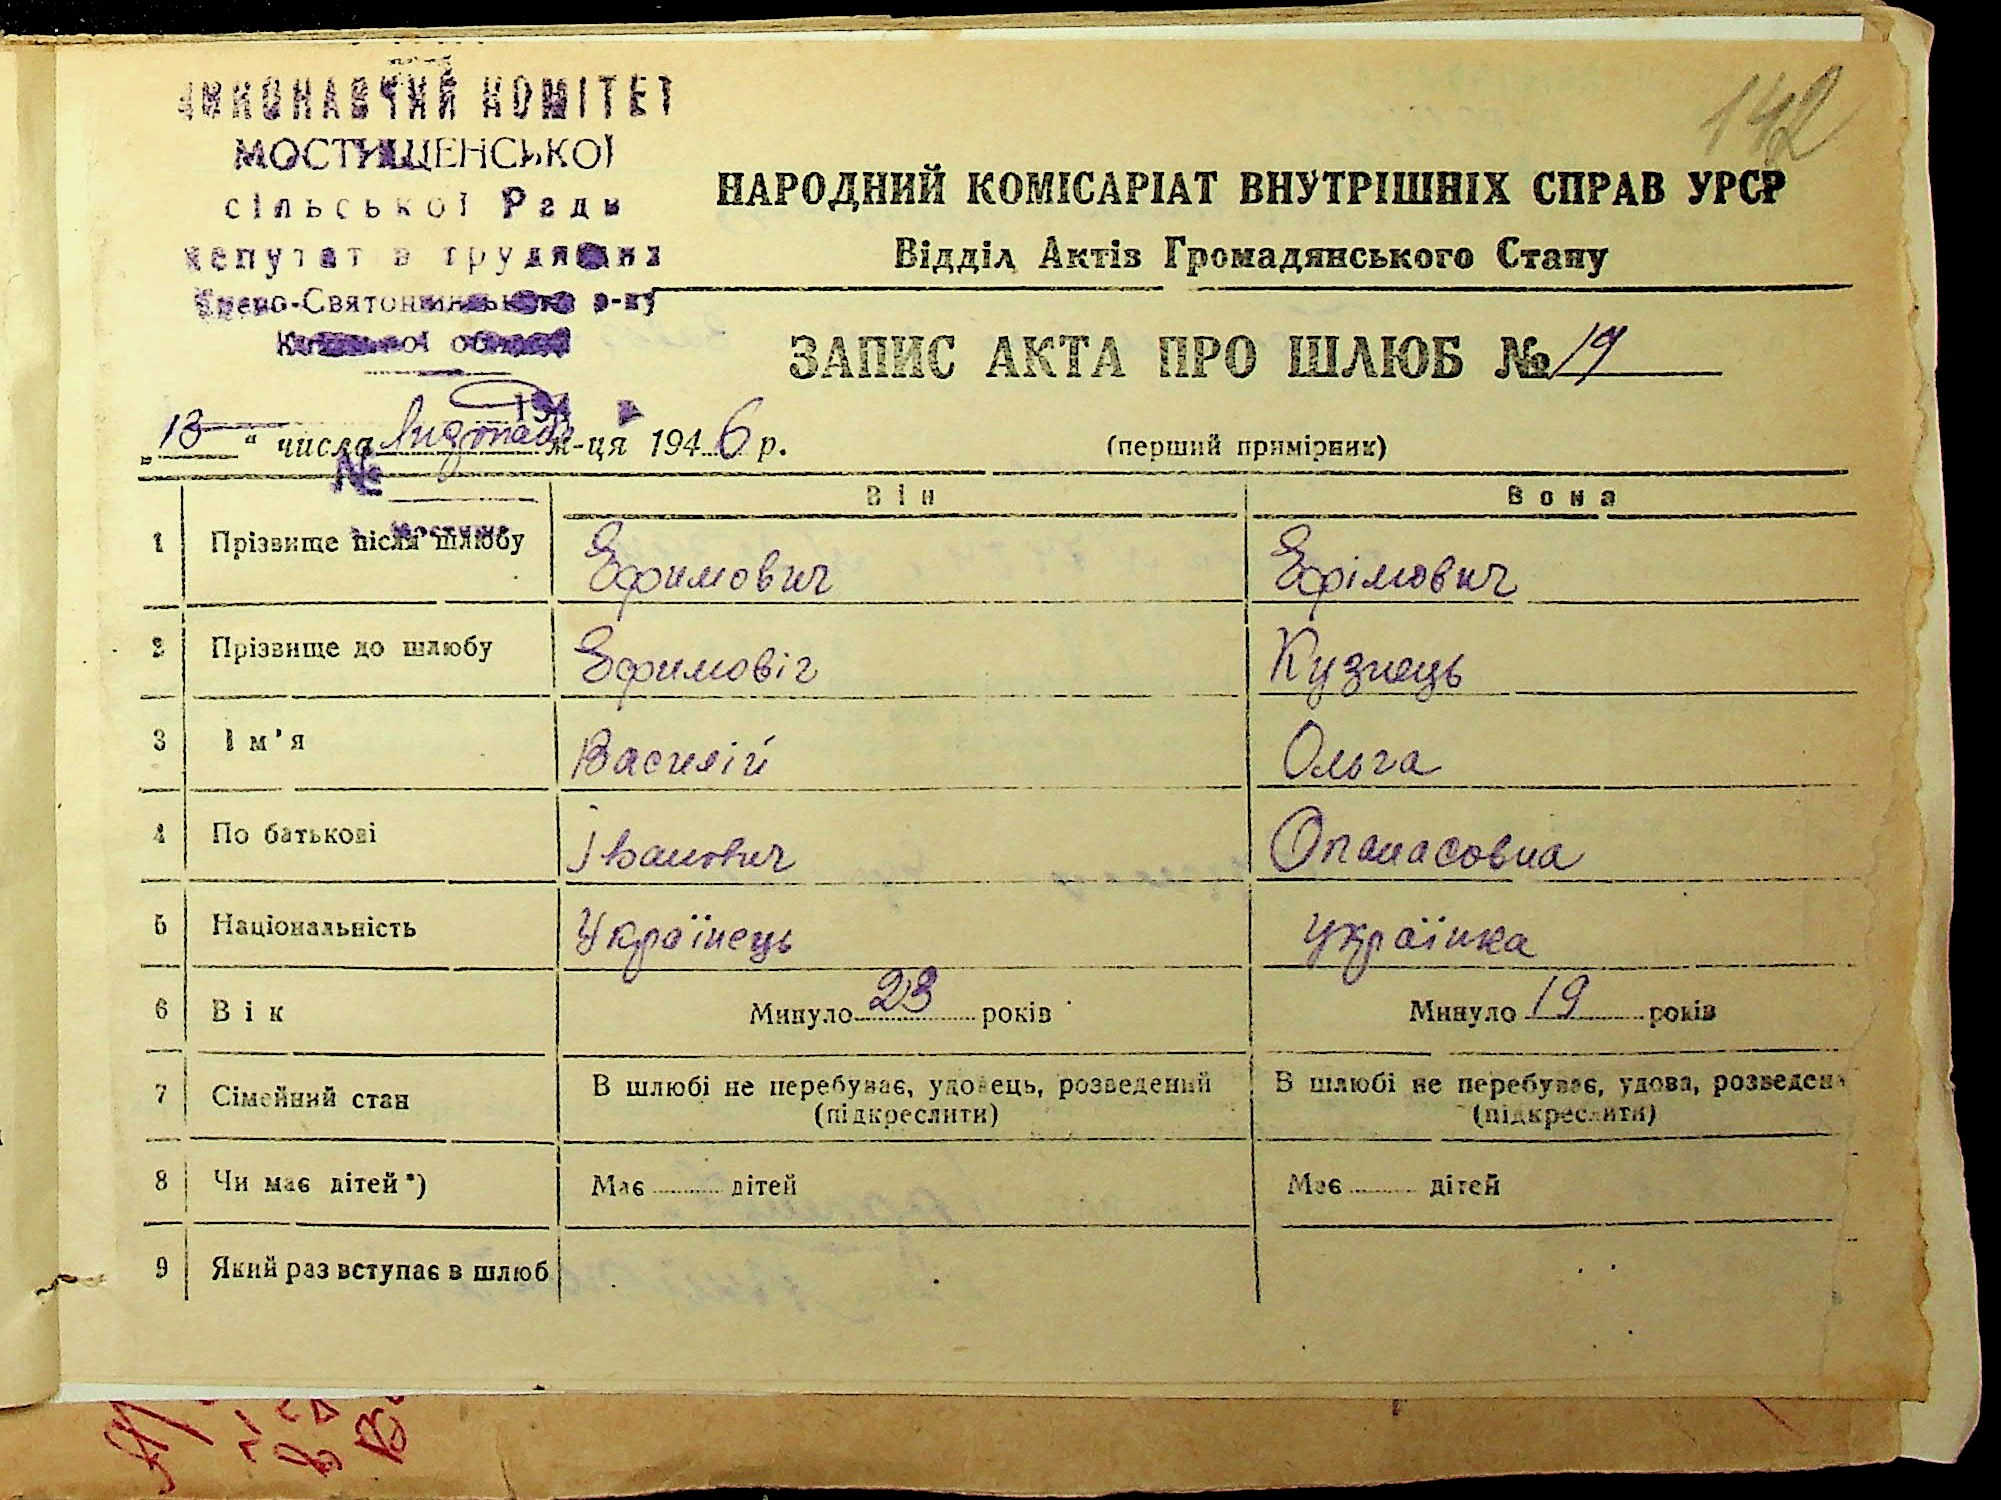 ВИКОНАВЧИЙ КОМІТЕТ
МОСТИЩЕНСЬКОЇ
сільської Ради
депутатів трудящих
Києво-Святошинського р-ну
Київської області
194
№
142
НАРОДНИЙ КОМІСАРІАТ ВНУТРІШНІХ СПРАВ УРСР
Відділ Актів Громадянського Стану
ЗАПИС АКТА ПРО ШЛЮБ № 19
„13“ числа Лидопада м-ця 1946 р.
(перший примірник)
Він Вона
1 Прізвище після шлюбу Ефимович Ефімович
2 Прізвище до шлюбу Ефимовіч Кузнець
3 Ім'я Василій Ольга
4 По батькові Іванович Опанасовна
5 Національність Українець українка
6 Вік Минуло 23 років Минуло 19 років
7 Сімейний стан В шлюбі не перебуває, удовець, розведений В шлюбі не перебуває, удова, розведена
(підкреслити) (підкреслити)
8 Чи має дітей*) Має ........ дітей Має ........ дітей
9 Який раз вступає в шлюб